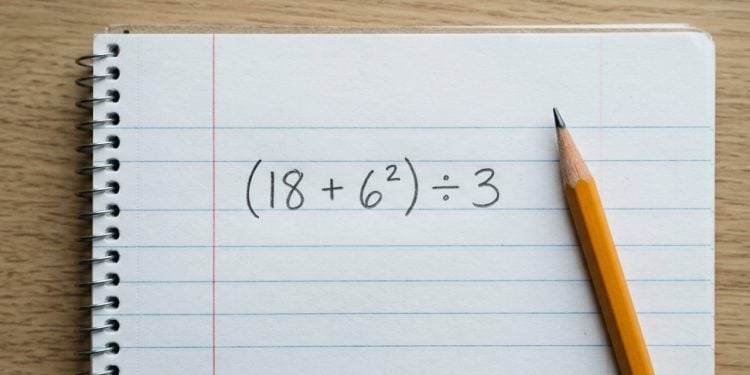 (18 + 6²) ÷ 3